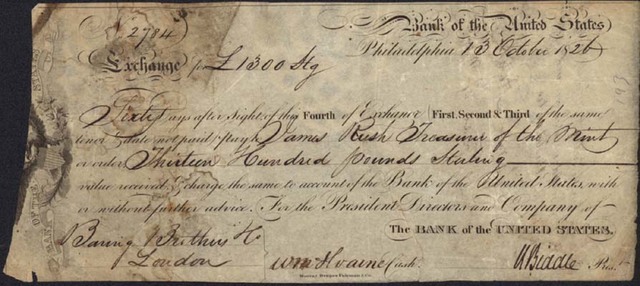 Bank of the United States
2784
Philadelphia 13 Octobr 1826
Exchange for £1300 Stg
Sixty days after Sight of this Fourth of Exchange (First, Second & Third of the same
tenor & date not paid) Pay to James Rush Treasurer of the Mint
or order Thirteen Hundred pounds Sterling
value received & charge the same to account of the Bank of the United States, with
or without further advice. For the President Directors and Company of
The BANK of the UNITED STATES.
Baring Brothers &
London
Wm McIlvaine Cash.
N Biddle Pres.t